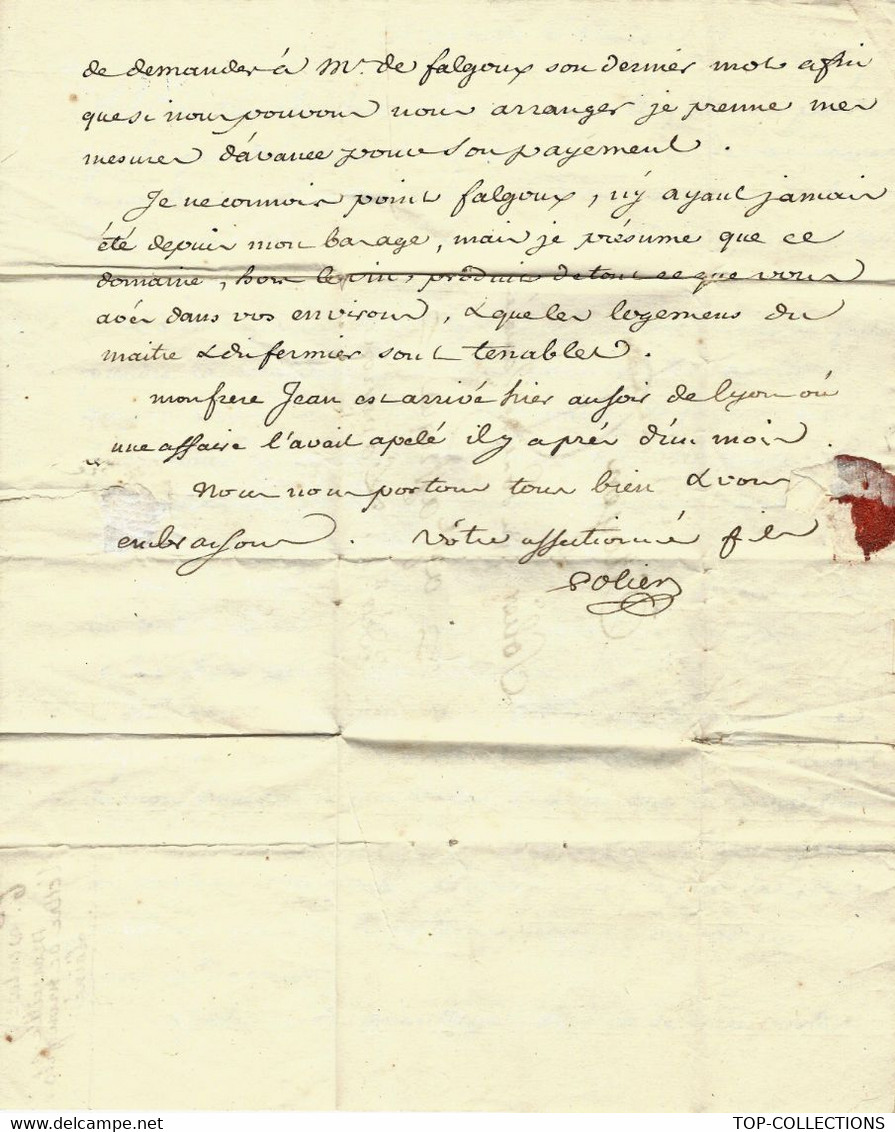 de demander à Mr. de falgoux son dernier mot afin
que si nous pouvons nous arranger je prenne mes
mesures d'avance pour son payement.
Je ne connois point falgoux, n'y ayant jamais
été depuis mon bas age, mais je présume que ce
domaine, hors le vin, produit de tout ce que vous
avés dans vos environs, & que les logemens du
maitre & du fermier sont tenables.
mon frere Jean est arrivé hier au soir de Lyon où
une affaire l'avait apelé il y a prés d'un mois.
Nous nous portons tous bien & vous
embrassons. Vôtre affectionné fils
Solier
TOP-COLLECTIONS